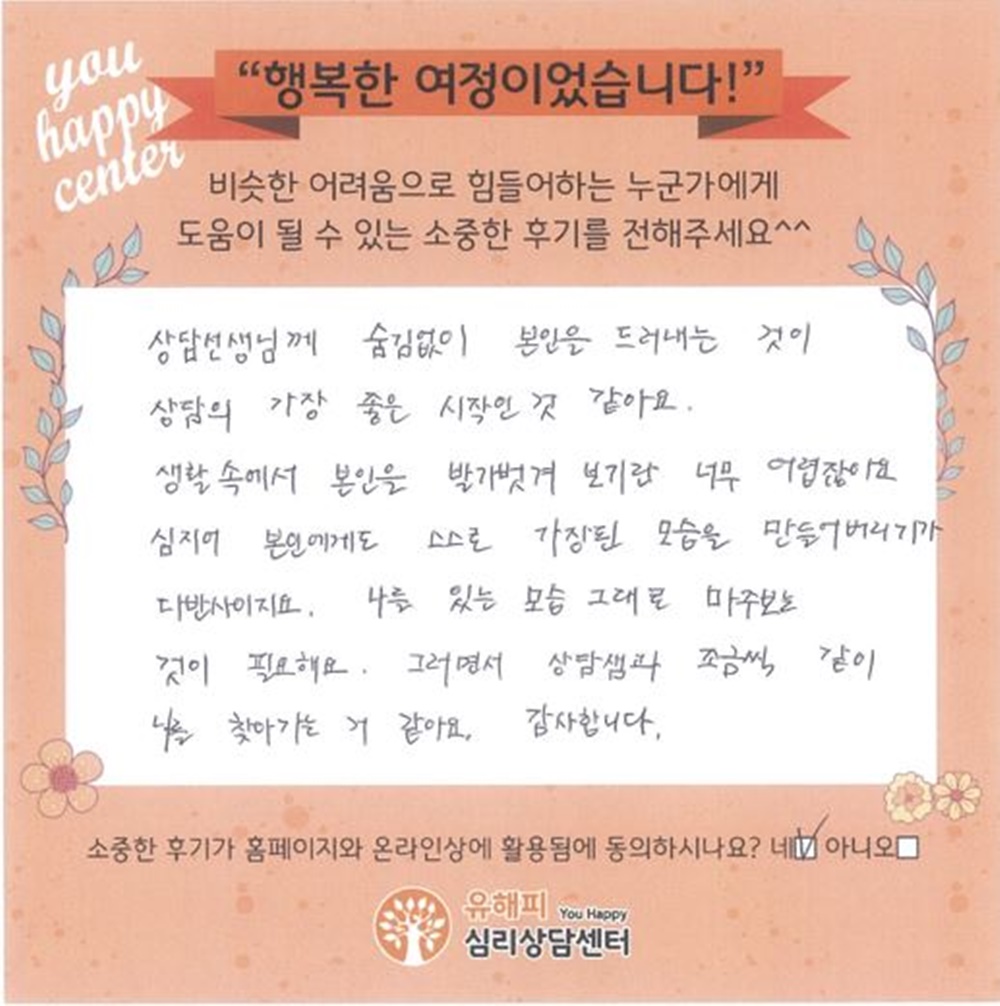 you
happy
center
“행복한 여정이었습니다!”
비슷한 어려움으로 힘들어하는 누군가에게
도움이 될 수 있는 소중한 후기를 전해주세요^^
상담선생님께 숨김없이 본인을 드러내는 것이
상담의 가장 좋은 시작인 것 같아요.
생활 속에서 본인을 발가벗겨 보기란 너무 어렵잖아요
심지어 본인에게도 스스로 가장된 모습을 만들어버리기가
다반사이지요. 나를 있는 모습 그대로 마주보는
것이 필요해요. 그러면서 상담샘과 조금씩 같이
나를 찾아가는 거 같아요. 감사합니다.
소중한 후기가 홈페이지와 온라인상에 활용됨에 동의하시나요? 네☑ 아니오☐
유해피 You Happy
심리상담센터